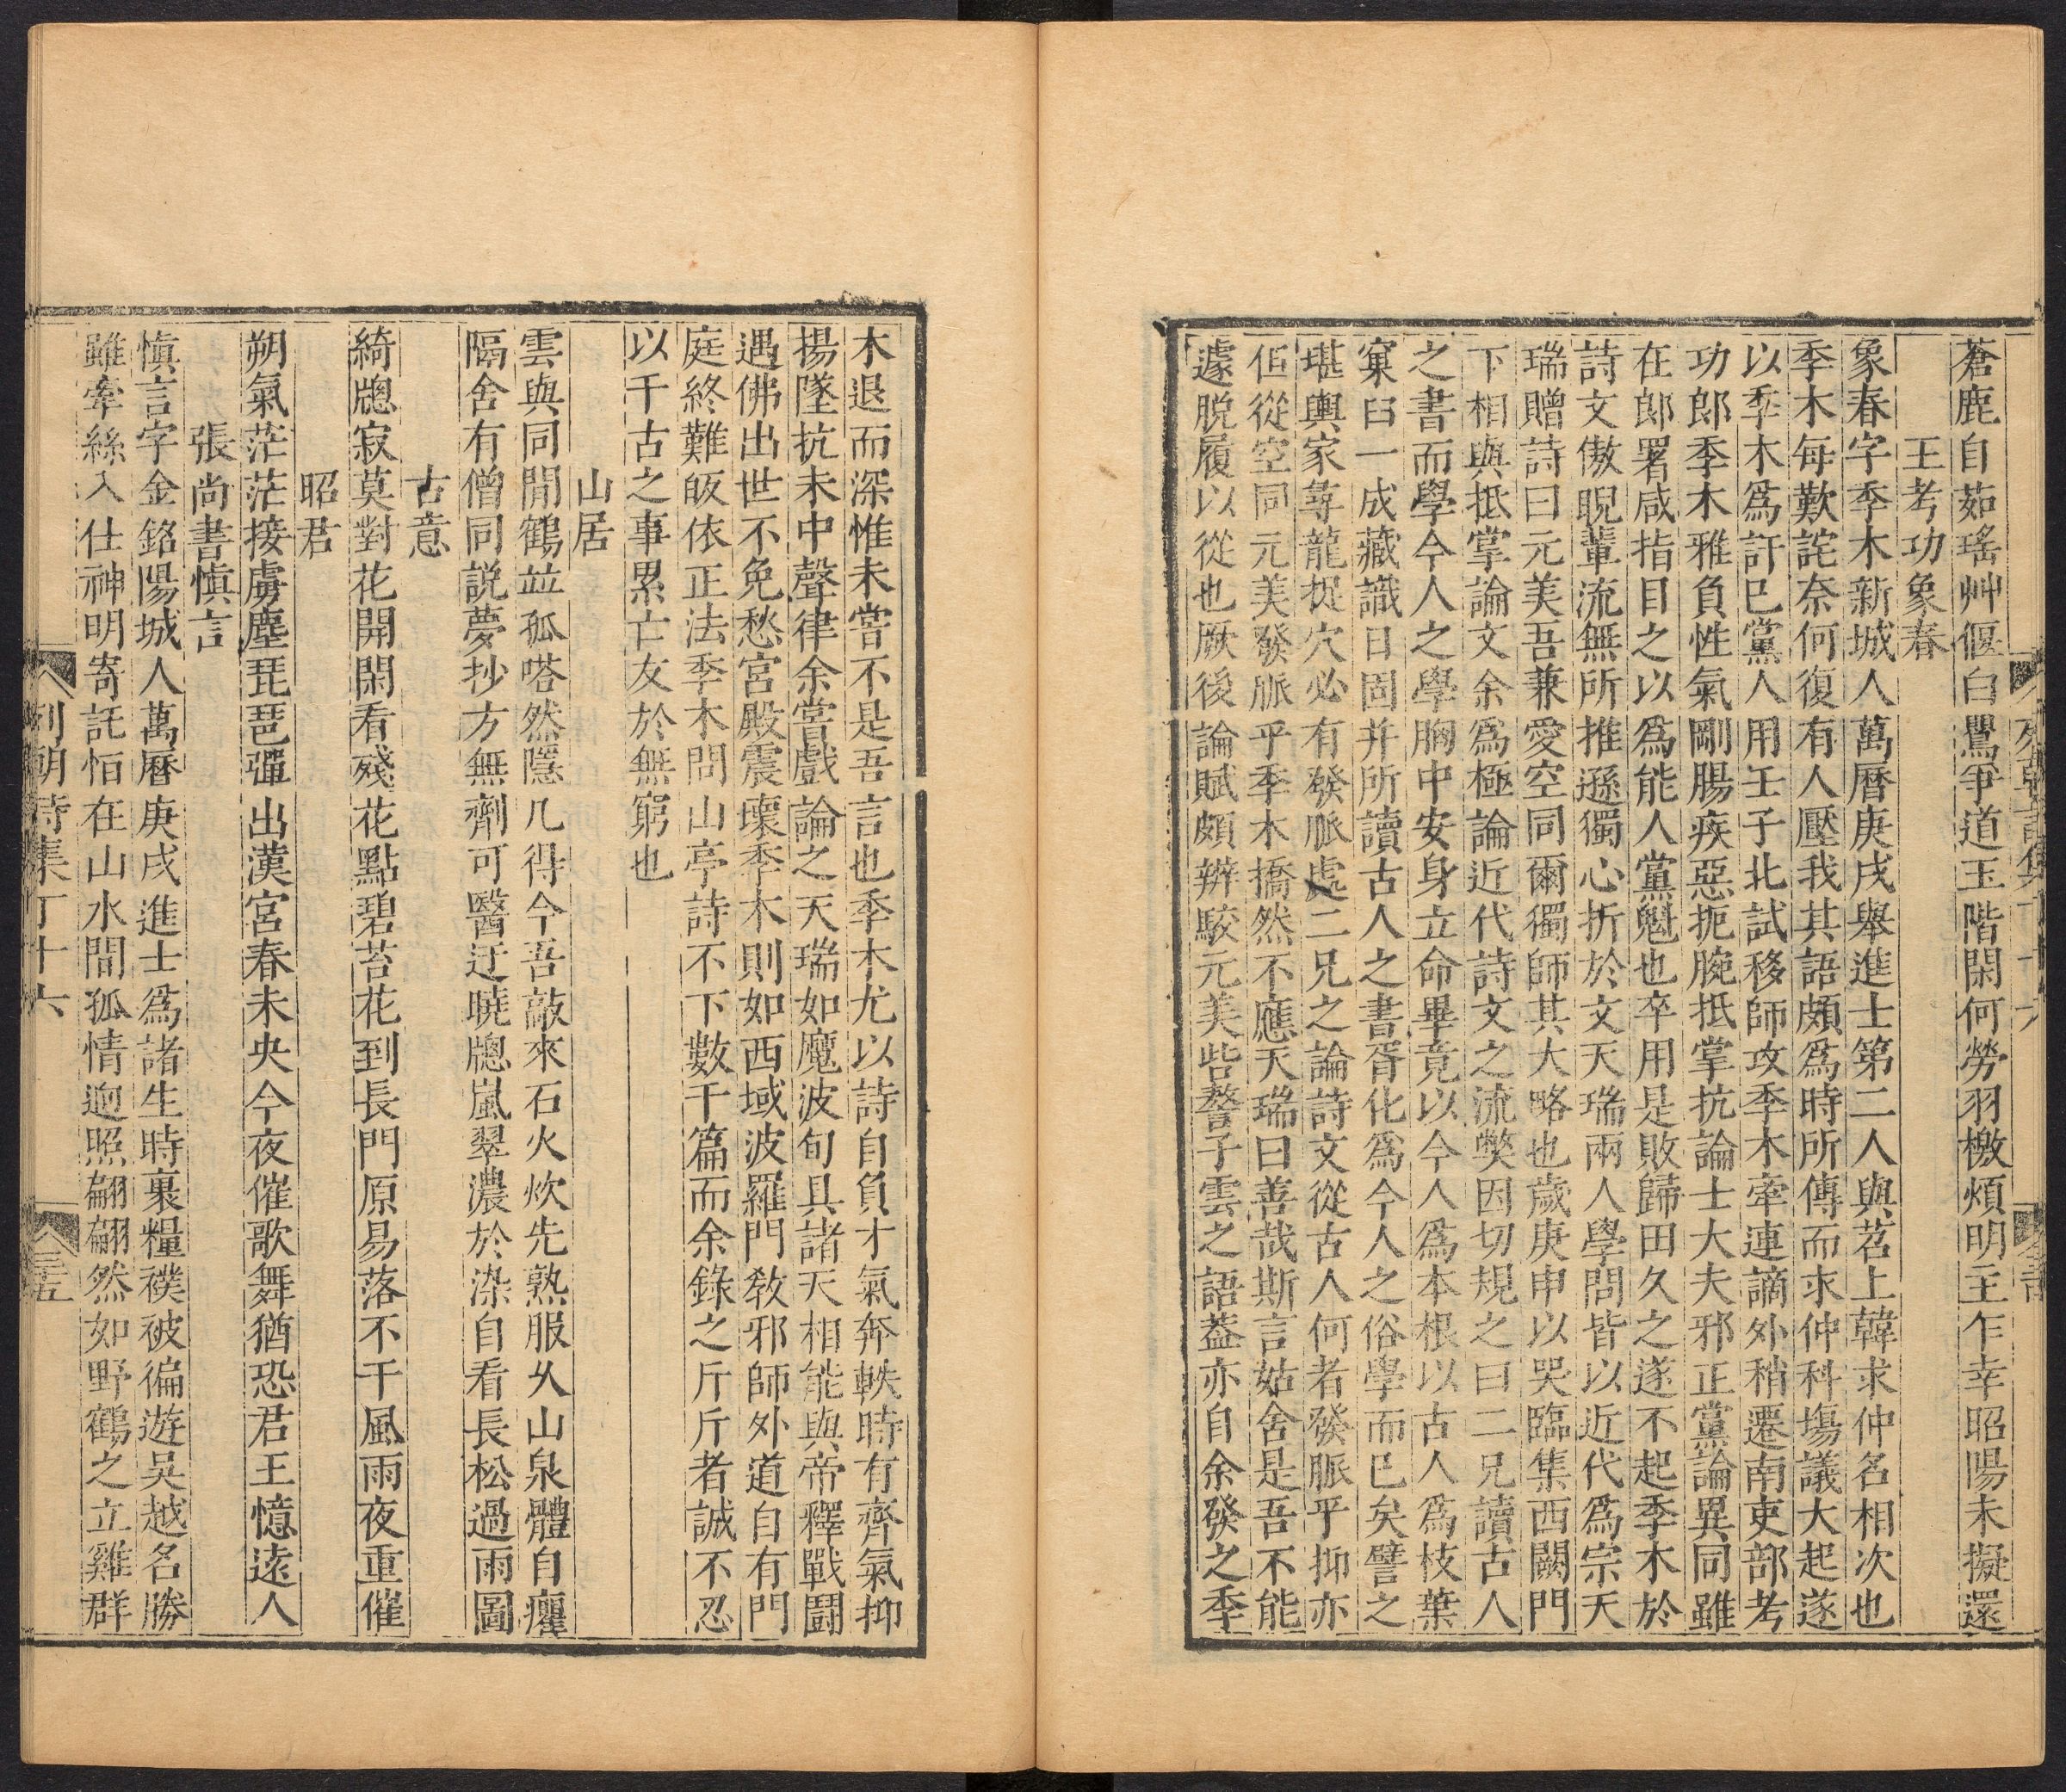 蒼鹿自茹瑤艸偃白鷺爭道玉階閑何勞羽檄煩明主乍幸昭陽未擬還
王考功象春
象春字季木新城人萬曆庚戌舉進士第二人與茗上韓求仲名相次也
季木每歎詫奈何復有人壓我其語頗爲時所傳而求仲科塲議大起遂
以季木爲訐巳黨人用壬子北試移師攻季木牽連謫外稍遷南吏部考
功郎季木雅負性氣剛腸疾惡扼腕抵掌抗論士大夫邪正黨論異同雖
在郎署咸指目之以爲能人黨魁也卒用是敗歸田久之遂不起季木於
詩文傲睨輩流無所推遜獨心折於文天瑞兩人學問皆以近代爲宗天
瑞贈詩曰元美吾兼愛空同爾獨師其大略也歲庚申以哭臨集西闕門
下相與抵掌論文余爲極論近代詩文之流獘因切規之曰二兄讀古人
之書而學今人之學胸中安身立命畢竟以今人爲本根以古人爲枝葉
窠臼一成藏識日固并所讀古人之書胥化爲今人之俗學而巳矣譬之
堪輿家尋龍捉穴必有發脈處二兄之論詩文從古人何者發脈乎抑亦
伹從空同元美發脈乎季木撟然不應天瑞曰善哉斯言姑舍是吾不能
遽脫履以從也厥後論賦頗辨駮元美訾謷子雲之語葢亦自余發之季
木退而深惟未嘗不是吾言也季木尤以詩自負才氣奔軼時有齊氣抑
揚墜抗未中聲律余嘗戲論之天瑞如魔波旬具諸天相能與帝釋戰鬪
遇佛出世不免愁宮殿震壞季木則如西域波羅門敎邪師外道自有門
庭終難皈依正法季木問山亭詩不下數千篇而余錄之斤斤者誠不忍
以千古之事累亡友於無窮也
山居
雲與同閒鶴竝孤嗒然隱几得今吾敲來石火炊先熟服乆山泉體自癯
隔舍有僧同説夢抄方無劑可醫迂曉牕嵐翠濃於染自看長松過雨圖
古意
綺牕寂莫對花開閑看殘花點碧苔花到長門原易落不干風雨夜重催
昭君
朔氣茫茫接虜塵琵琶彈出漢宮春未央今夜催歌舞猶恐君王憶遠人
張尚書愼言
愼言字金銘陽城人萬曆庚戌進士爲諸生時裹糧襆被徧遊吳越名勝
雖牽絲入仕神明寄託恒在山水間狐情逈照翩翩然如野鶴之立雞群
列朝詩集丁十六
三五